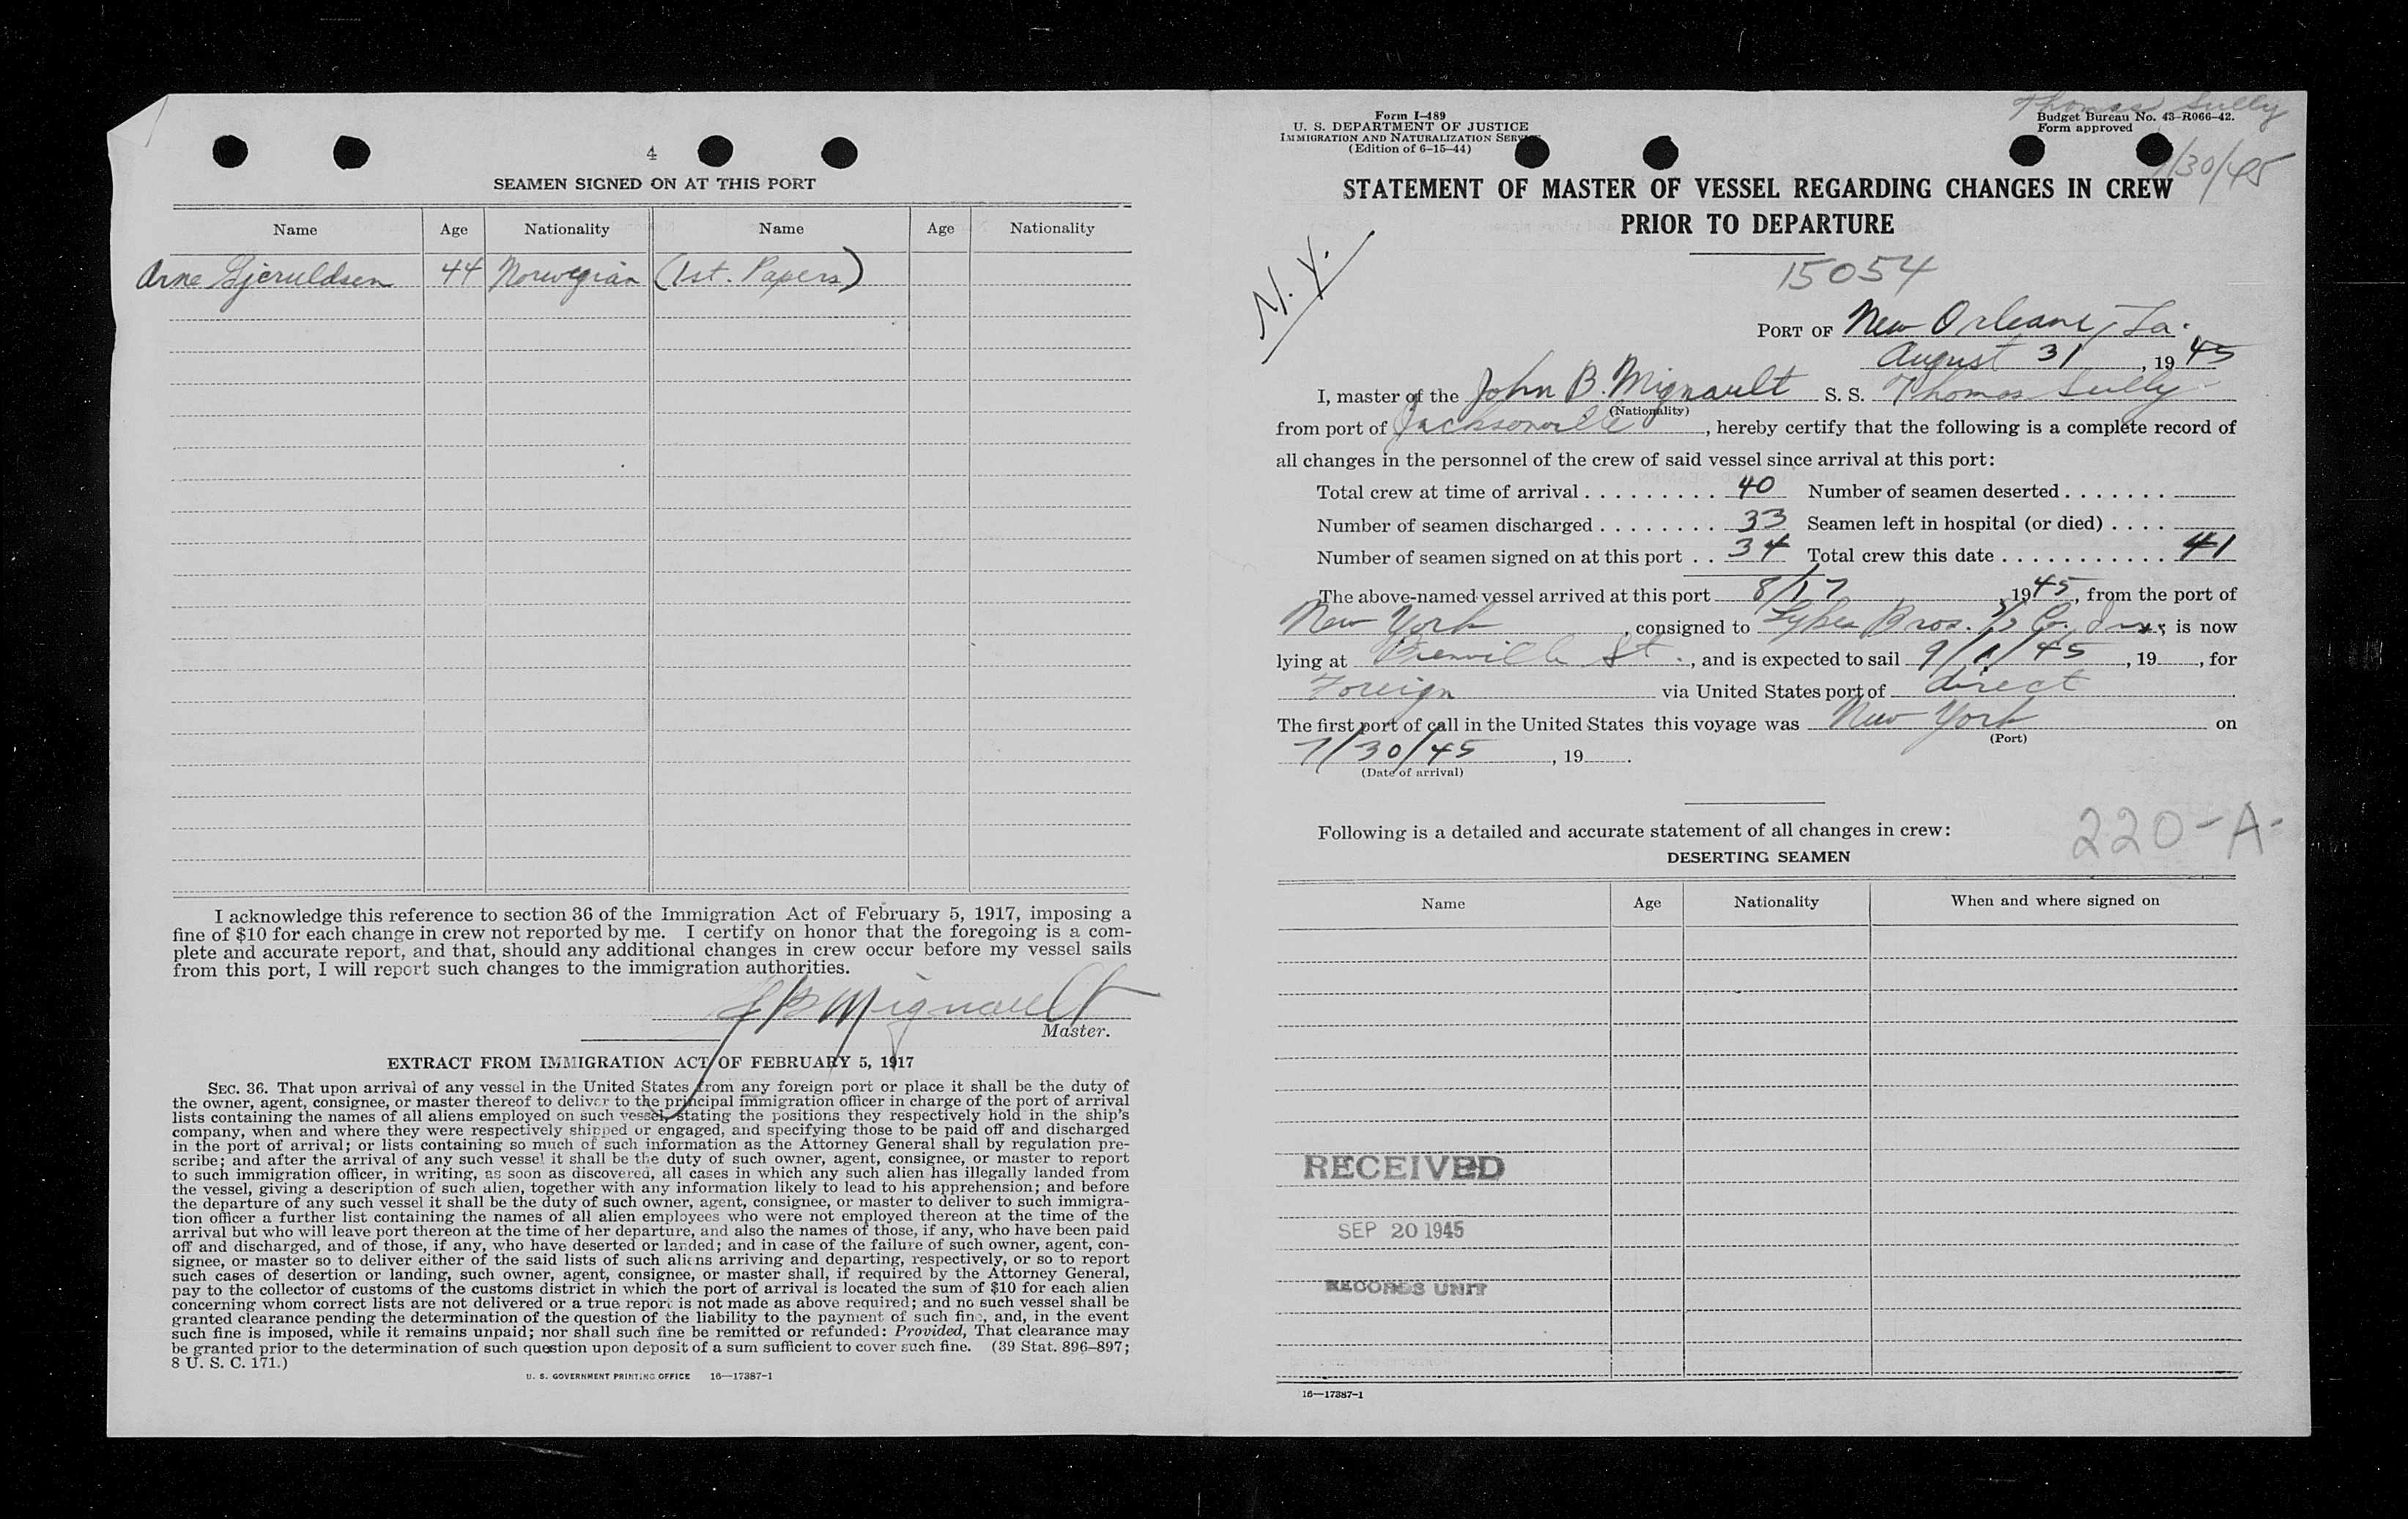 4
SEAMEN SIGNED ON AT THIS PORT
Name Age Nationality Name Age Nationality
Arne Gjeruldsen 44 Norwegian (1st. Papers)
I acknowledge this reference to section 36 of the Immigration Act of February 5, 1917, imposing a
fine of $10 for each change in crew not reported by me. I certify on honor that the foregoing is a com-
plete and accurate report, and that, should any additional changes in crew occur before my vessel sails
from this port, I will report such changes to the immigration authorities.
J B Mignault
Master.
EXTRACT FROM IMMIGRATION ACT OF FEBRUARY 5, 1917
SEC. 36. That upon arrival of any vessel in the United States from any foreign port or place it shall be the duty of
the owner, agent, consignee, or master thereof to deliver to the principal immigration officer in charge of the port of arrival
lists containing the names of all aliens employed on such vessel, stating the positions they respectively hold in the ship's
company, when and where they were respectively shipped or engaged, and specifying those to be paid off and discharged
in the port of arrival; or lists containing so much of such information as the Attorney General shall by regulation pre-
scribe; and after the arrival of any such vessel it shall be the duty of such owner, agent, consignee, or master to report
to such immigration officer, in writing, as soon as discovered, all cases in which any such alien has illegally landed from
the vessel, giving a description of such alien, together with any information likely to lead to his apprehension; and before
the departure of any such vessel it shall be the duty of such owner, agent, consignee, or master to deliver to such immigra-
tion officer a further list containing the names of all alien employees who were not employed thereon at the time of the
arrival but who will leave port thereon at the time of her departure, and also the names of those, if any, who have been paid
off and discharged, and of those, if any, who have deserted or landed; and in case of the failure of such owner, agent, con-
signee, or master so to deliver either of the said lists of such aliens arriving and departing, respectively, or so to report
such cases of desertion or landing, such owner, agent, consignee, or master shall, if required by the Attorney General,
pay to the collector of customs of the customs district in which the port of arrival is located the sum of $10 for each alien
concerning whom correct lists are not delivered or a true report is not made as above required; and no such vessel shall be
granted clearance pending the determination of the question of the liability to the payment of such fine, and, in the event
such fine is imposed, while it remains unpaid; nor shall such fine be remitted or refunded: Provided, That clearance may
be granted prior to the determination of such question upon deposit of a sum sufficient to cover such fine. (39 Stat. 896–897;
8 U. S. C. 171.)
U. S. GOVERNMENT PRINTING OFFICE 16—17387-1
Thomas Sully
Form I–489
U. S. DEPARTMENT OF JUSTICE
IMMIGRATION AND NATURALIZATION SERVICE
(Edition of 6–15–44)
Budget Bureau No. 43–R066–42.
Form approved
7/30/45
STATEMENT OF MASTER OF VESSEL REGARDING CHANGES IN CREW
PRIOR TO DEPARTURE
N. Y.
15054
PORT OF New Orleans, La.
August 31, 1945
I, master of the John B. Mignault S. S. Thomas Sully
(Nationality)
from port of Jacksonville, hereby certify that the following is a complete record of
all changes in the personnel of the crew of said vessel since arrival at this port:
Total crew at time of arrival . . . . . . . . . 40 Number of seamen deserted . . . . . . .
Number of seamen discharged . . . . . . . . 33 Seamen left in hospital (or died) . . . .
Number of seamen signed on at this port . . 34 Total crew this date . . . . . . . . . . . . 41
The above-named vessel arrived at this port 8/17, 1945, from the port of
New York, consigned to Lykes Bros. S/S Co., Inc.; is now
lying at Bienville St., and is expected to sail 9/1/45, 19 , for
Foreign via United States port of direct.
The first port of call in the United States this voyage was New York on
(Port)
7/30/45, 19 .
(Date of arrival)
Following is a detailed and accurate statement of all changes in crew:
220-A-
DESERTING SEAMEN
Name Age Nationality When and where signed on
RECEIVED
SEP 20 1945
RECORDS UNIT
16—17387-1